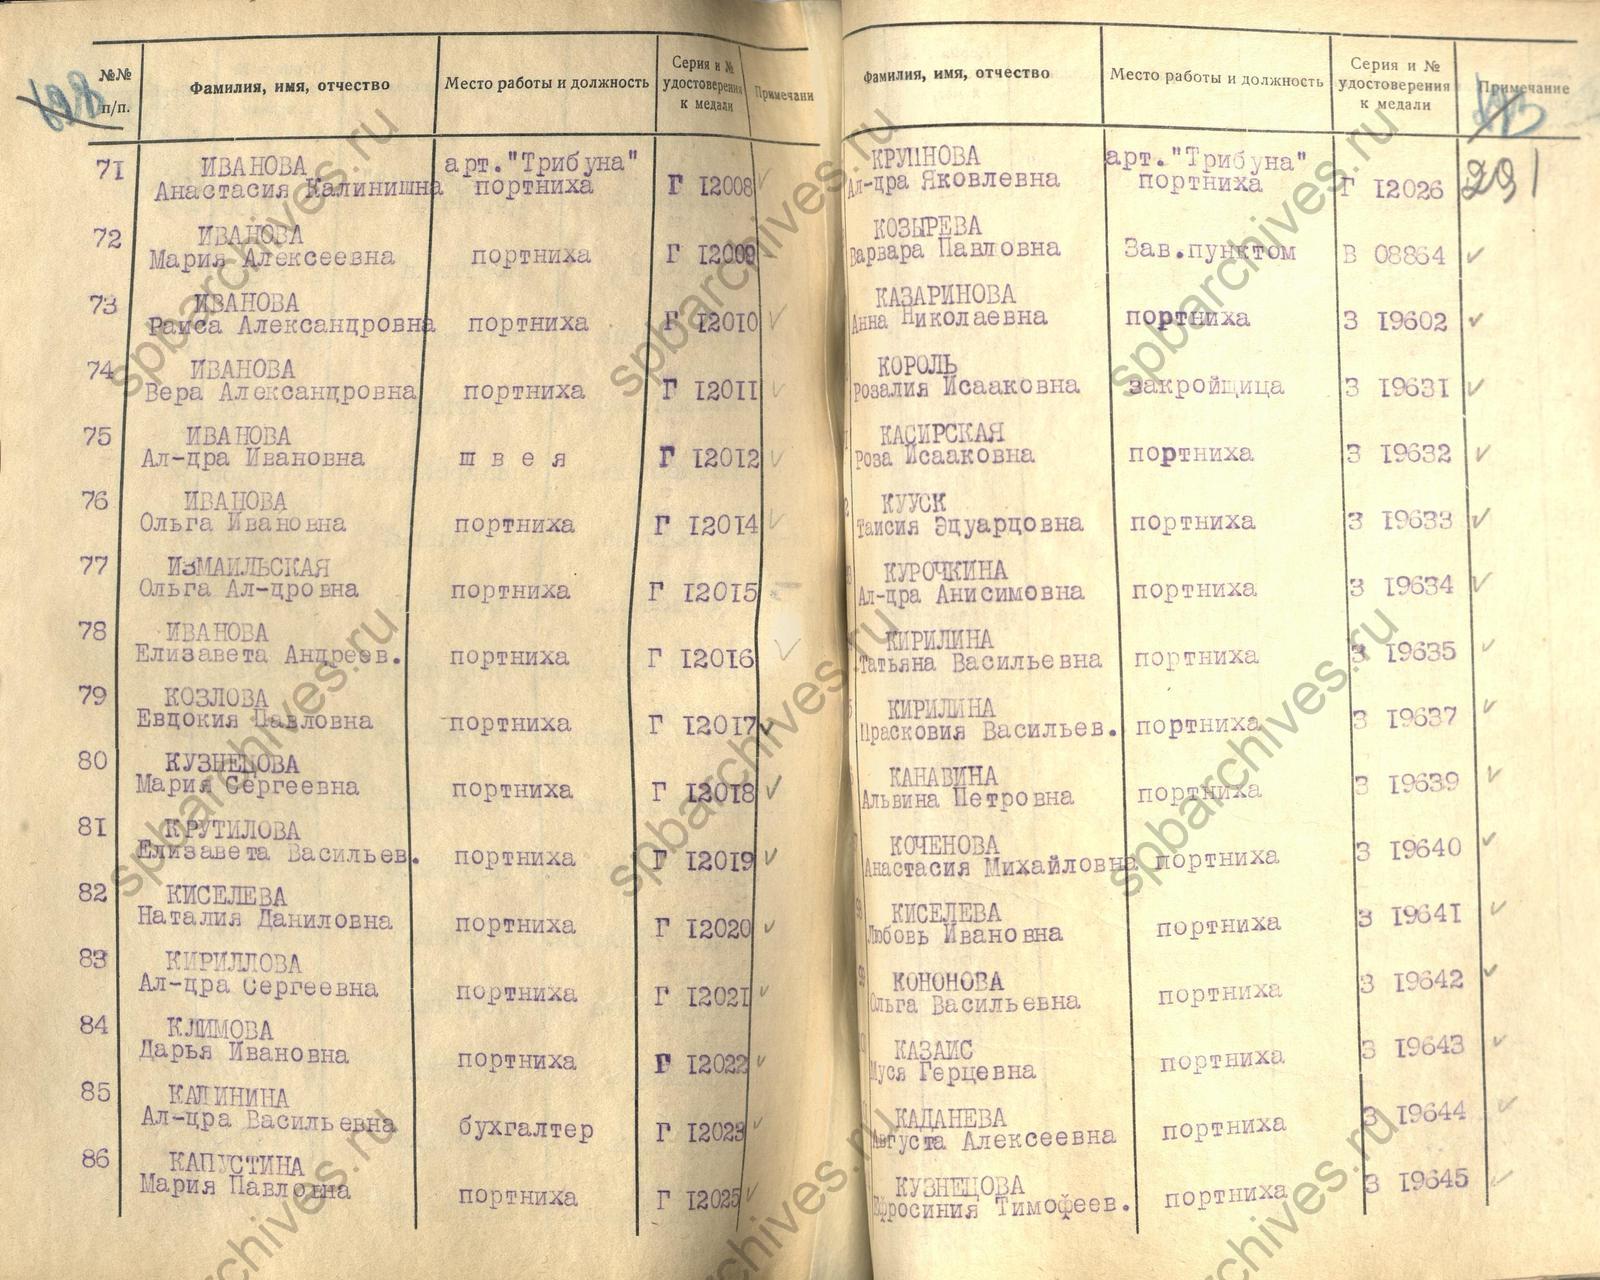 №№ п/п. Фамилия, имя, отчество Место работы и должность Серия и № удостоверения к медали Примечани
71 ИВАНОВА арт."Трибуна"
Анастасия Калинишна портниха Г I2008
72 ИВАНОВА
Мария Алексеевна портниха Г I2009
73 ИВАНОВА
Раиса Александровна портниха Г I20I0
74 ИВАНОВА
Вера Александровна портниха Г I20II
75 ИВАНОВА
Ал-дра Ивановна ш в е я Г I20I2
76 ИВАНОВА
Ольга Ивановна портниха Г I20I4
77 ИЗМАИЛЬСКАЯ
Ольга Ал-дровна портниха Г I20I5
78 ИВАНОВА
Елизавета Андреев. портниха Г I20I6
79 КОЗЛОВА
Евдокия Павловна портниха Г I20I7
80 КУЗНЕЦОВА
Мария Сергеевна портниха Г I20I8
81 КРУТИЛОВА
Елизавета Васильев. портниха Г I20I9
82 КИСЕЛЕВА
Наталия Даниловна портниха Г I2020
83 КИРИЛЛОВА
Ал-дра Сергеевна портниха Г I202I
84 КЛИМОВА
Дарья Ивановна портниха Г I2022
85 КАЛИНИНА
Ал-дра Васильевна бухгалтер Г I2023
86 КАПУСТИНА
Мария Павловна портниха Г I2025
Фамилия, имя, отчество Место работы и должность Серия и № удостоверения к медали Примечание
291
КРУПНОВА арт."Трибуна"
Ал-дра Яковлевна портниха Г I2026
КОЗЫРЕВА
Варвара Павловна Зав.пунктом В 08864
КАЗАРИНОВА
Анна Николаевна портниха З I9602
КОРОЛЬ
Розалия Исааковна закройщица З I963I
КАСИРСКАЯ
Роза Исааковна портниха З I9632
КУУСК
Таисия Эдуардовна портниха З I9633
КУРОЧКИНА
Ал-дра Анисимовна портниха З I9634
КИРИЛИНА
Татьяна Васильевна портниха З I9635
КИРИЛИНА
Прасковия Васильев. портниха З I9637
КАНАВИНА
Альвина Петровна портниха З I9639
КОЧЕНОВА
Анастасия Михайловна портниха З I9640
КИСЕЛЕВА
Любовь Ивановна портниха З I964I
КОНОНОВА
Ольга Васильевна портниха З I9642
КАЗАИС
Муся Герцевна портниха З I9643
КАДАНЕВА
Августа Алексеевна портниха З I9644
КУЗНЕЦОВА
Ефросиния Тимофеев. портниха З I9645
spbarchives.ru